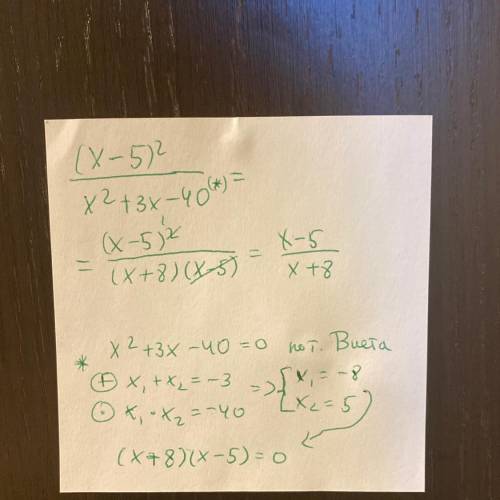 (x-5)²
x²+3x-40(*) =
= (x-5)²¹ / (x+8)(x-5) = x-5 / x+8
* x²+3x-40=0 по т. Виета
⊕ x₁+x₂=-3 => { x₁=-8
⊙ x₁·x₂=-40 x₂=5
(x+8)(x-5)=0